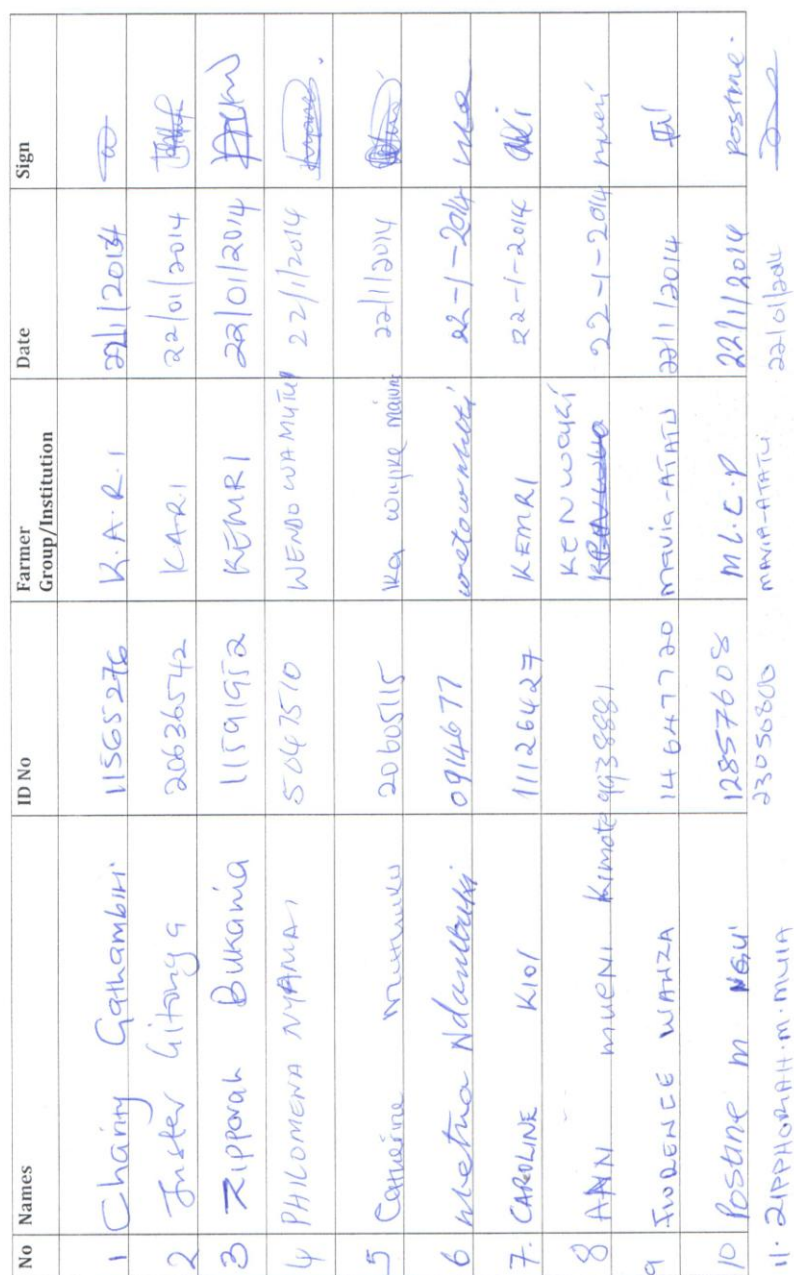 No Names ID No Farmer Group/Institution Date Sign
1 Charity Gathambiri 11565276 K.A.R.I 22/1/2014
2 Juster Gitonga 20636542 KARI 22/01/2014
3 Zipporah Bukania 11591952 KEMRI 22/01/2014
4 PHILOMENA NYAMAI 5047510 WENDO WA MUTUI 22/1/2014
5 Catherine Mutunku 20605115 Ka wiyike 22/1/2014
6 Metna Ndambuki 0914677 22-1-2014
7. CAROLINE KIOI 11126427 KEMRI 22-1-2014
8 ANN MUENI Kimote 9938881 KENWOUKI 22-1-2014 mueni
9 FLORENCE WANZA 14647720 MAVIA-ATATU 22/1/2014
10 Postine M NGUI 12857608 M L.C.P 22/1/2014 Postine.
11. ZIPPHORAH.M.MUIA 23050800 MAVIA-ATATU 22/01/2014